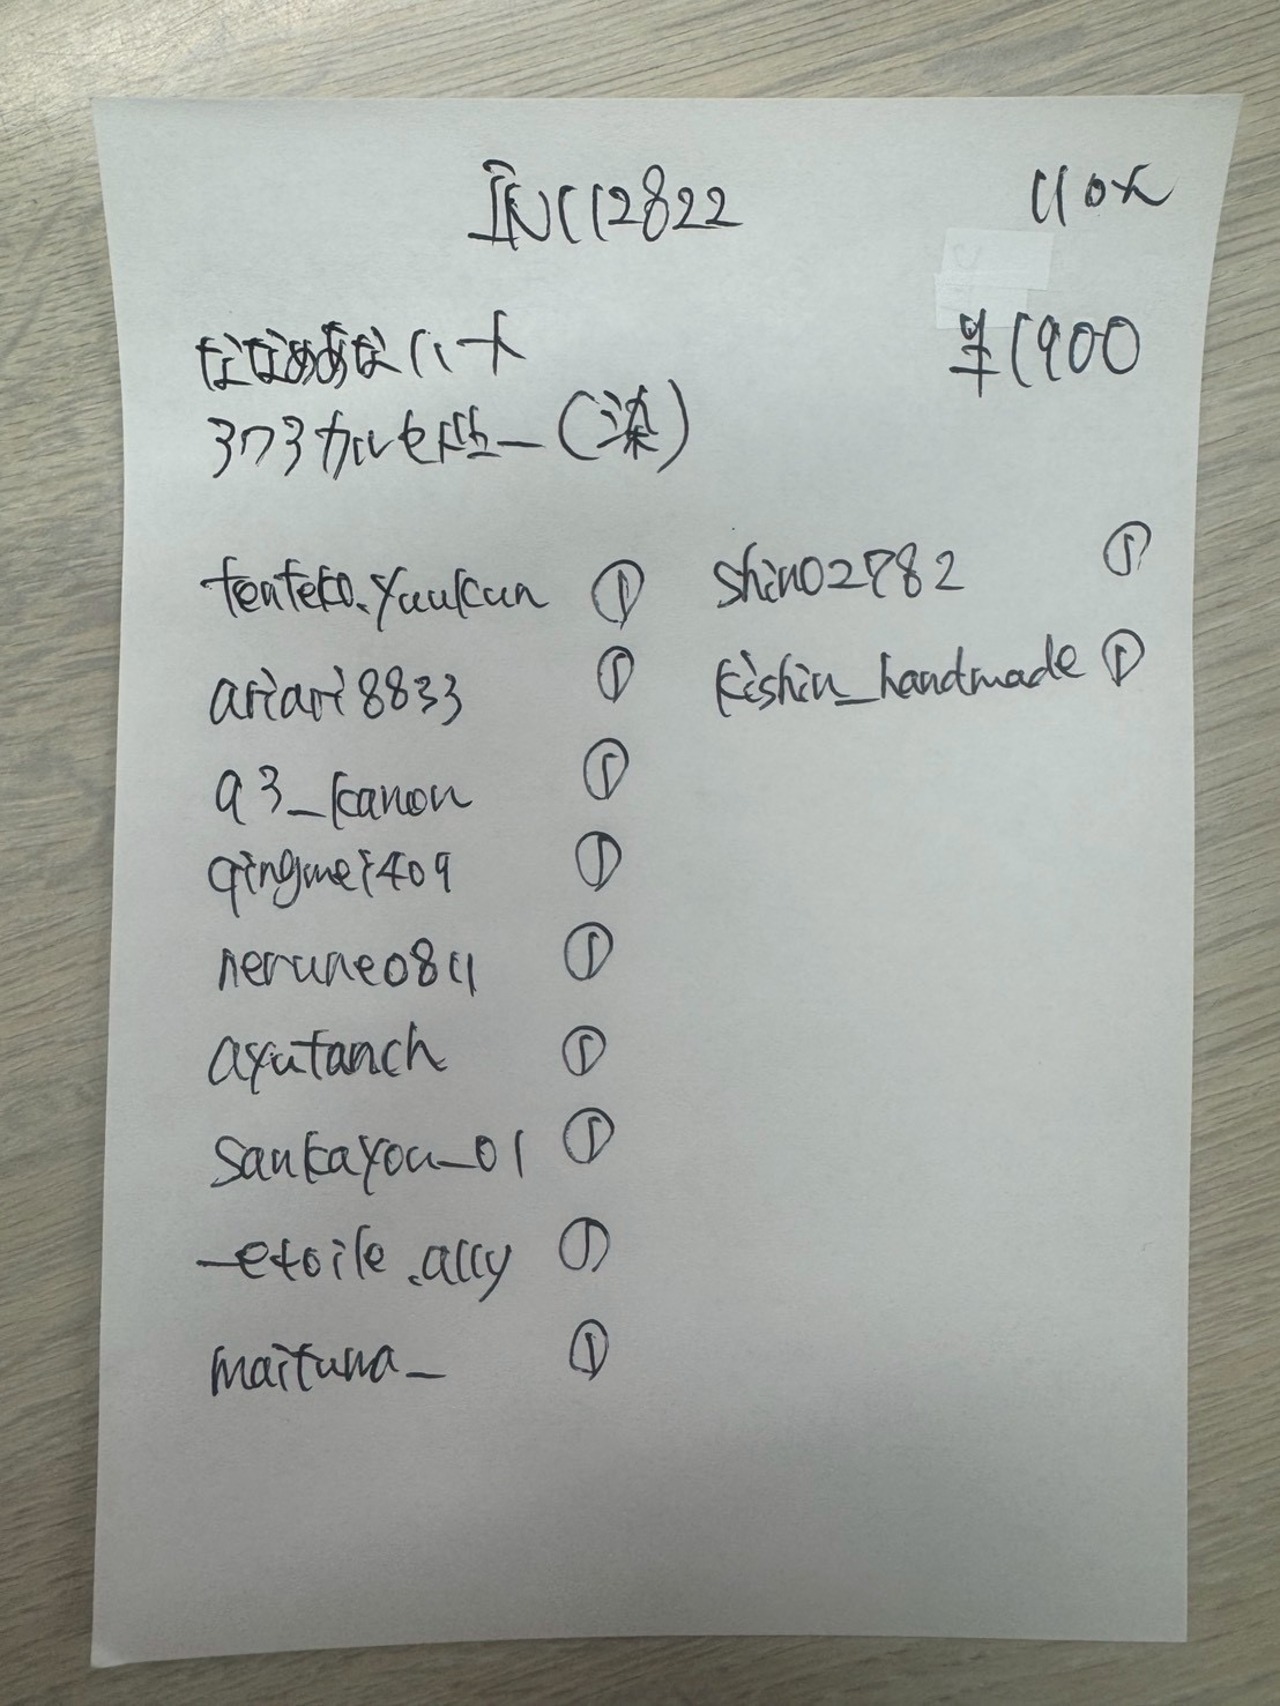 IN112822
110x
¥1900
ななめあなハート
373カルセドニー(染)
tenteko.yuukun ①
ariari8833 ①
a3_kanon ①
qingmei409 ①
nerune0811 ①
ayutanch ①
sankayou_01 ①
_etoile.ally ①
maituna_ ①
shino2782 ①
kishin_handmade ①